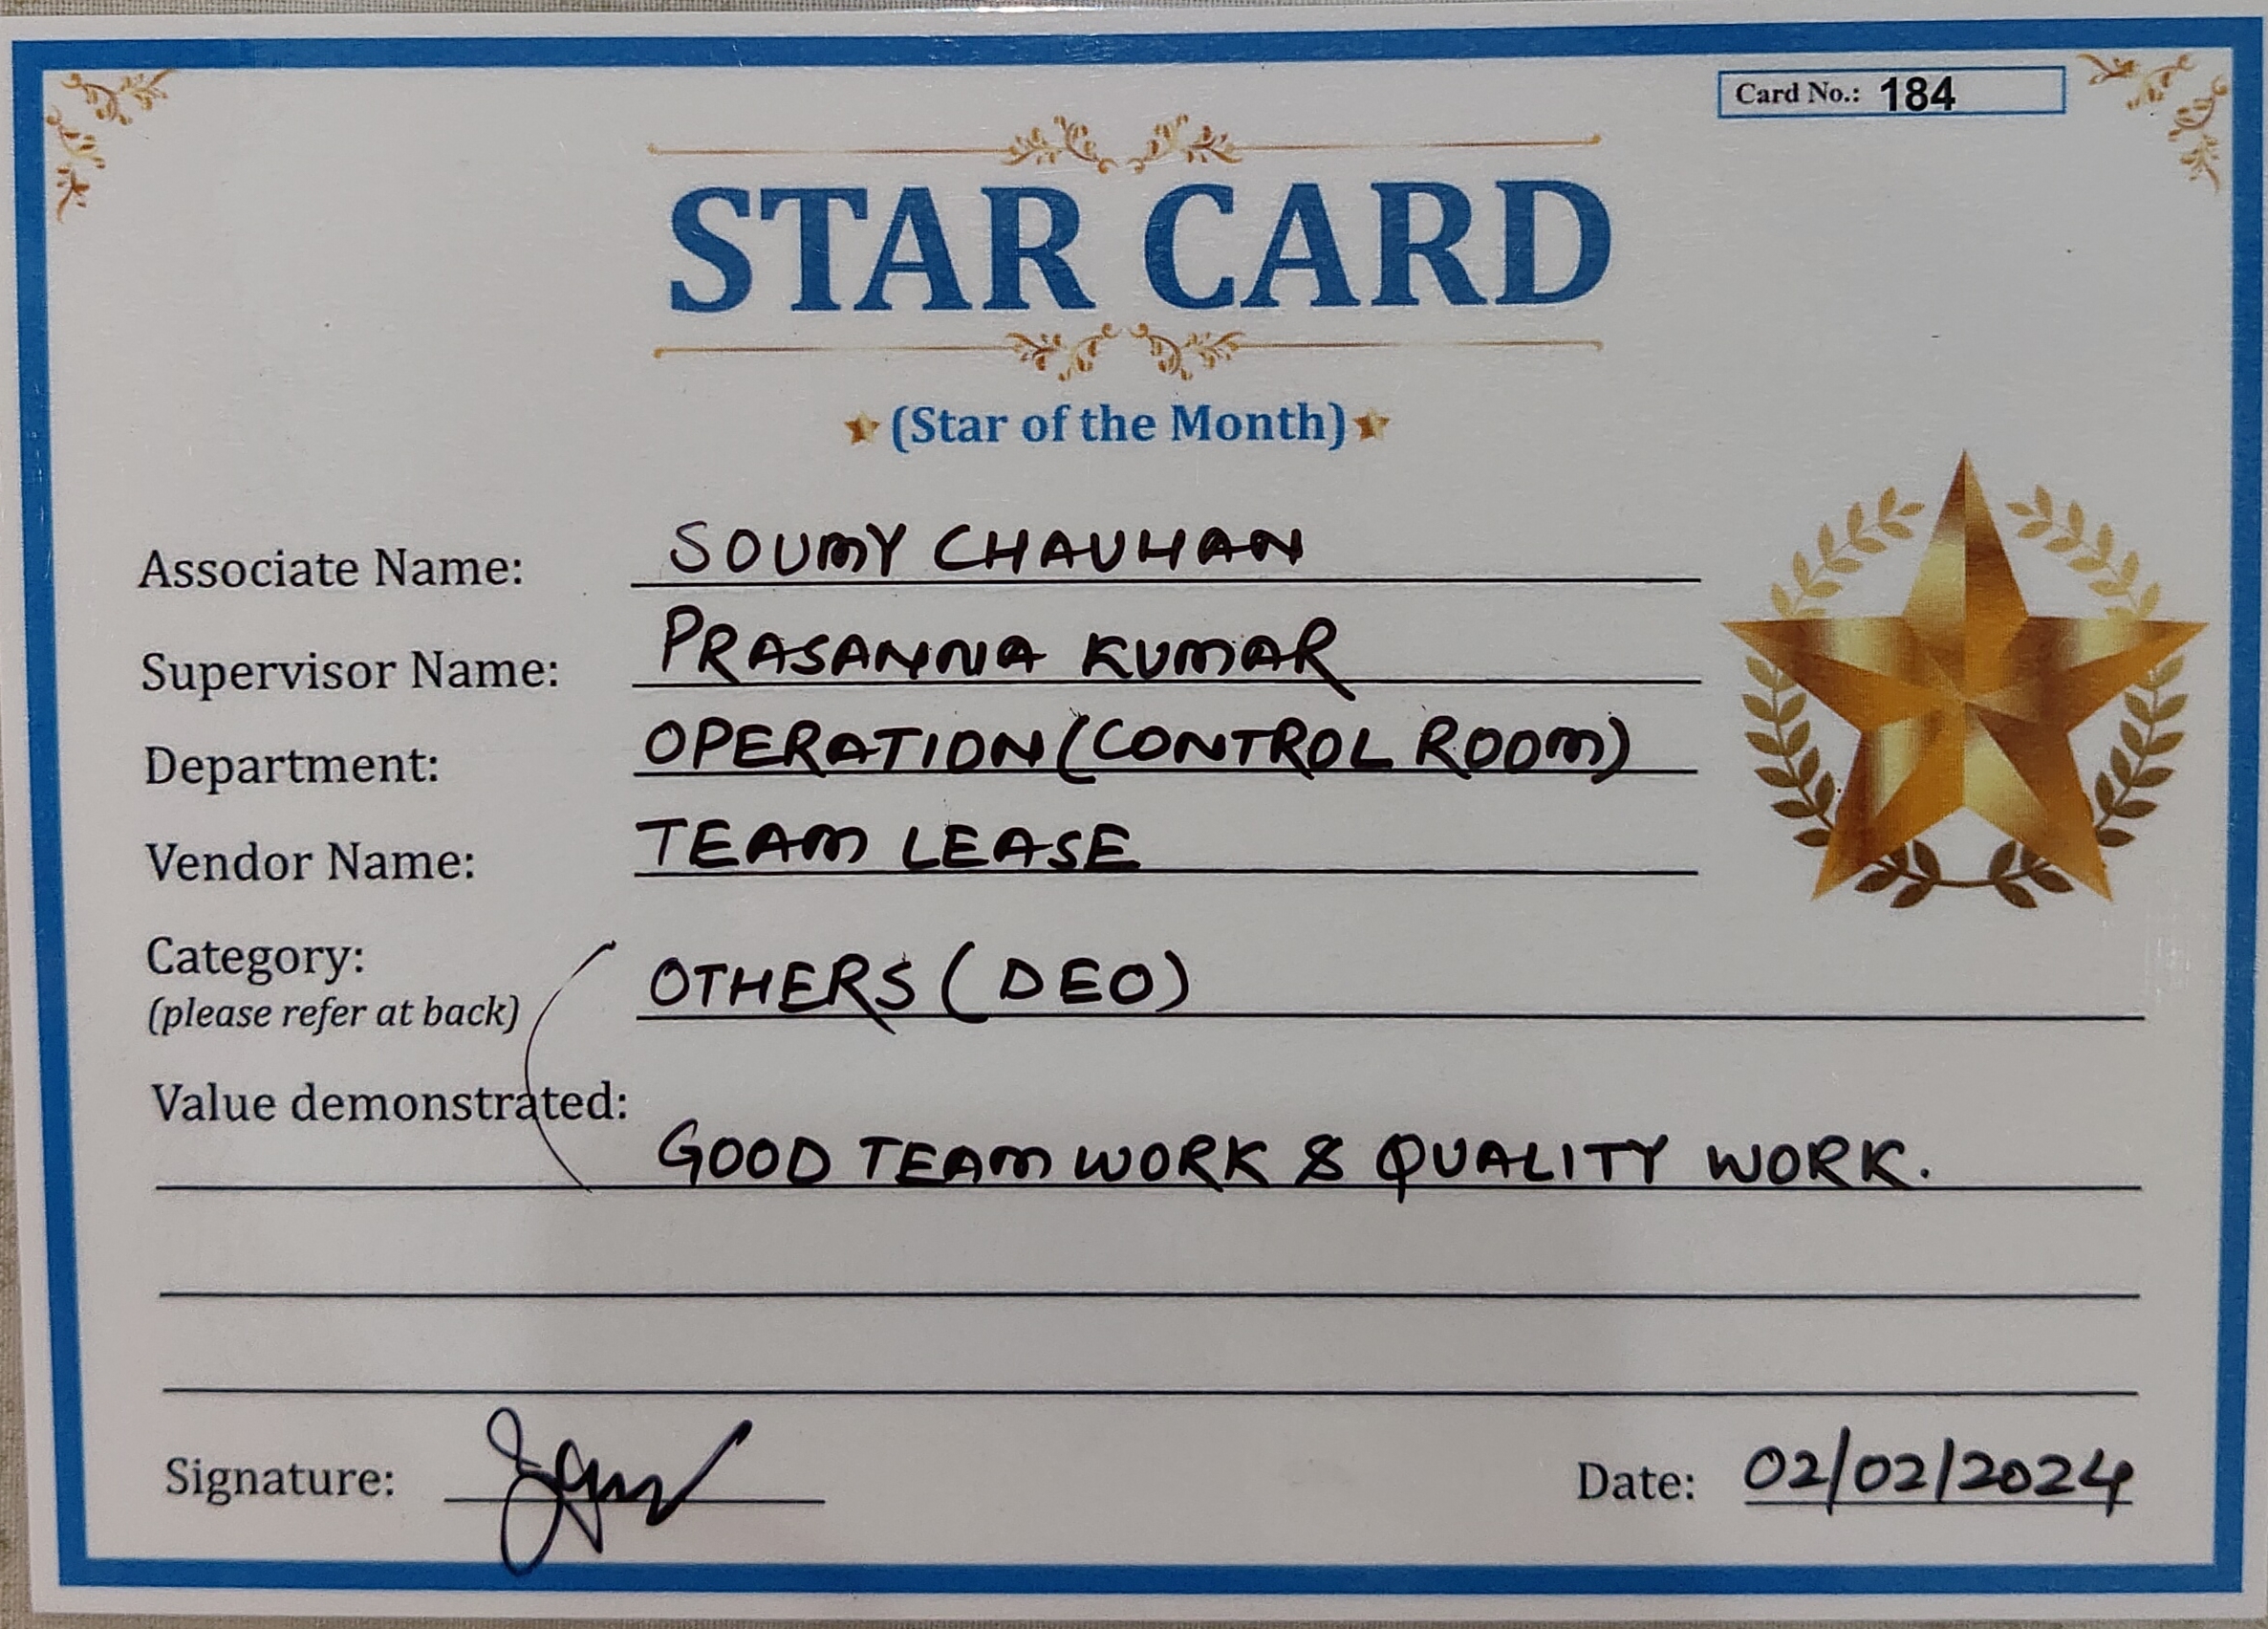 Card No.: 184
STAR CARD
(Star of the Month)
Associate Name: SOUMY CHAUHAN
Supervisor Name: PRASANNA KUMAR
Department: OPERATION (CONTROL ROOM)
Vendor Name: TEAM LEASE
Category: OTHERS (DEO)
(please refer at back)
Value demonstrated:
GOOD TEAM WORK & QUALITY WORK.
Signature:
Date: 02/02/2024